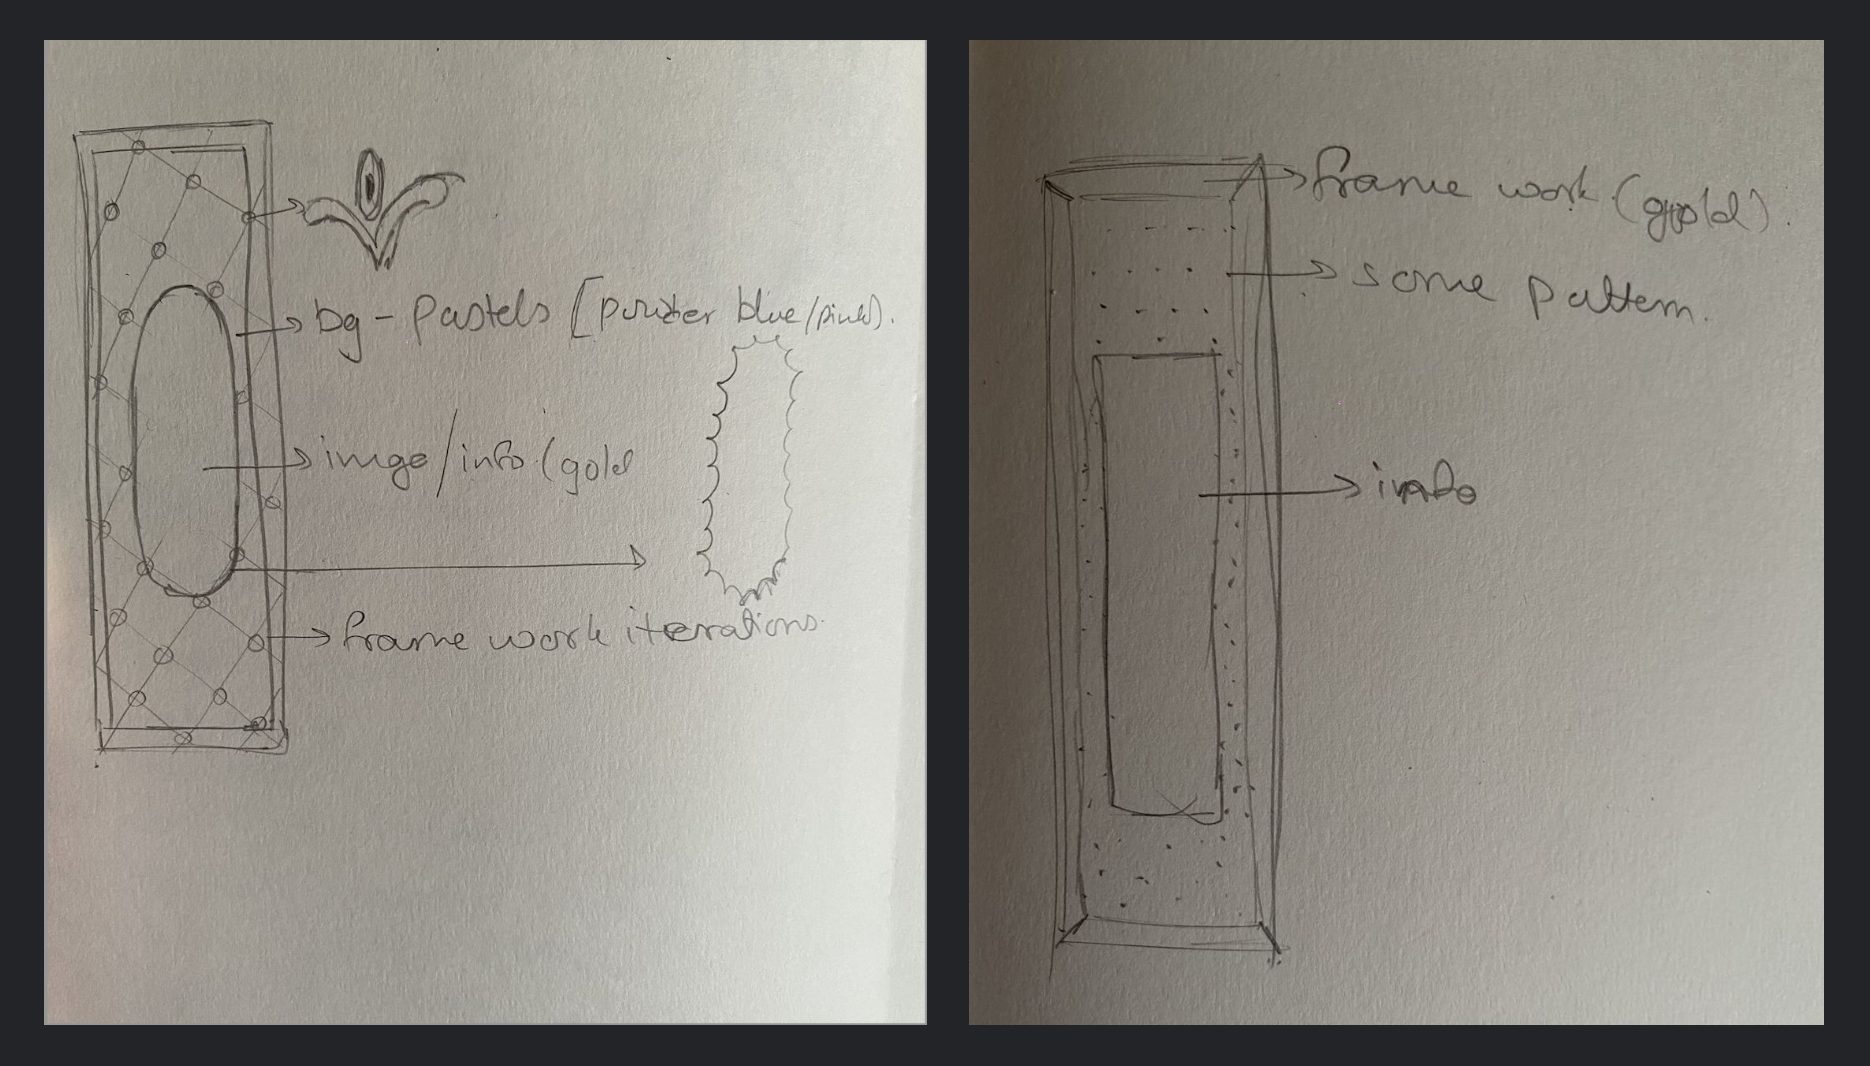 bg - pastels [powder blue/pink).
image/info (gold
frame work iterations.
frame work (gold).
some pattern.
info